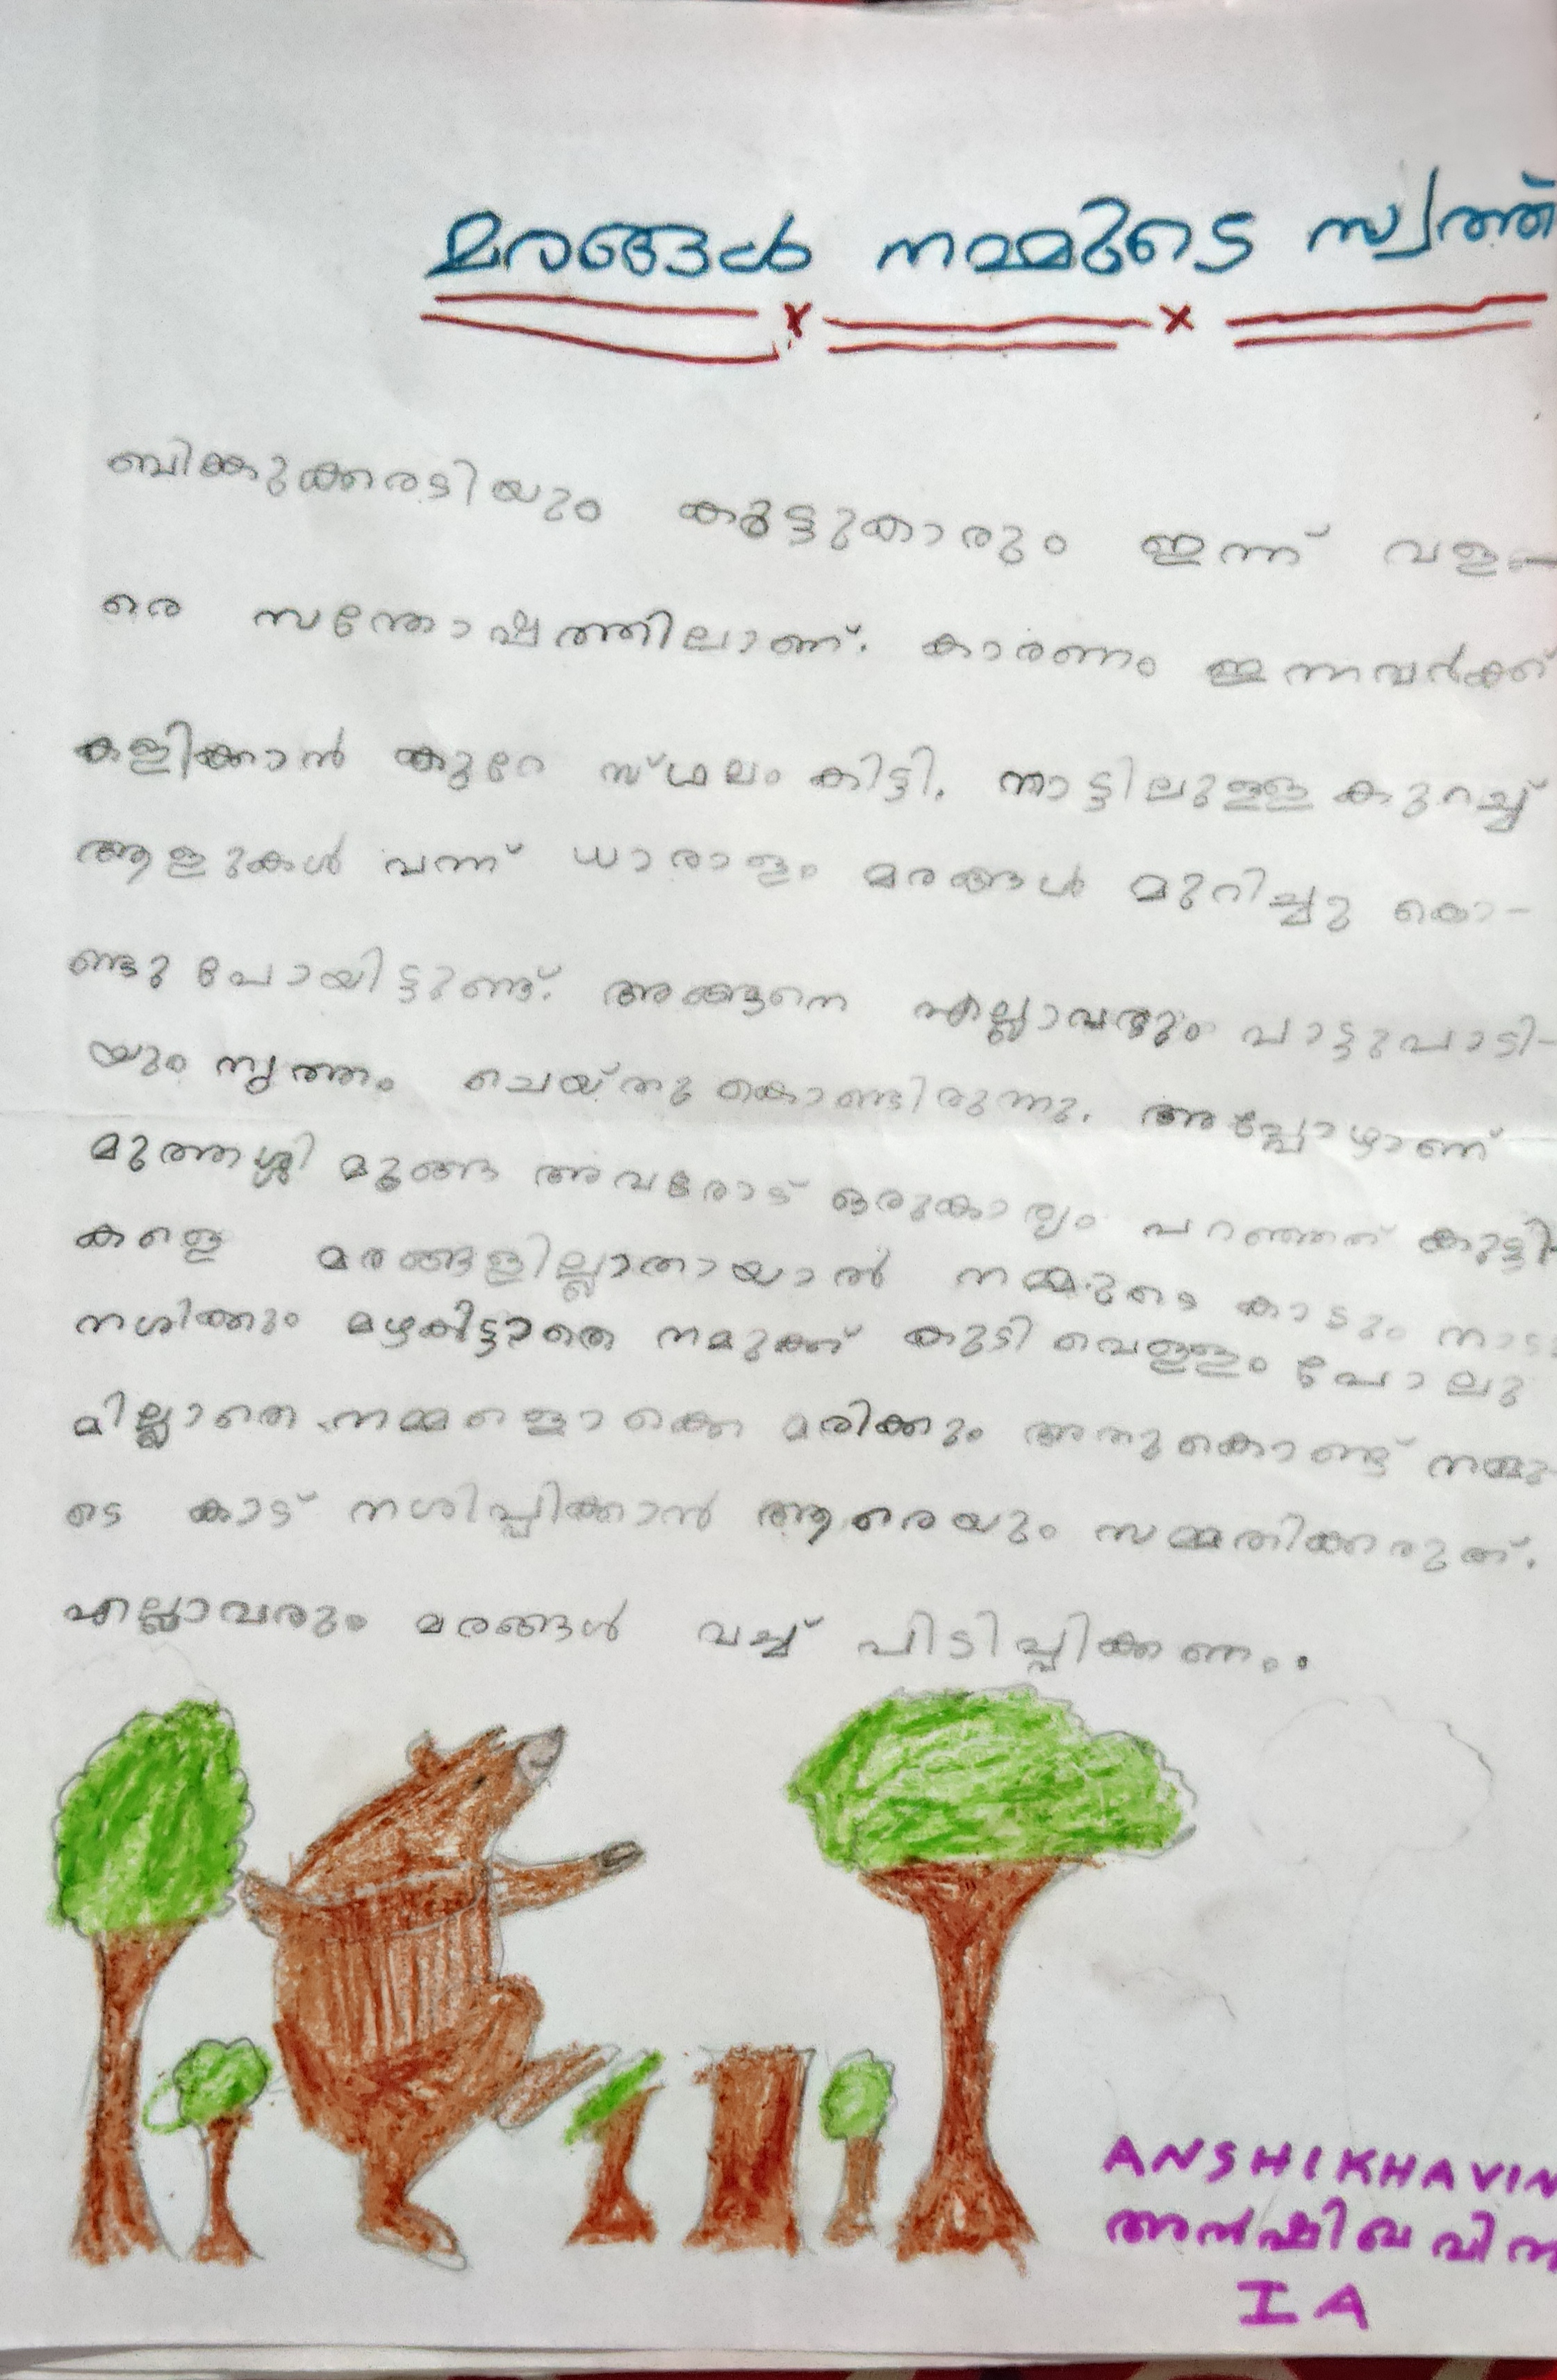 മരങ്ങൾ നമ്മുടെ സ്വത്ത്
ബിങ്കുക്കരടിയും കൂട്ടുകാരും ഇന്ന് വള-
രെ സന്തോഷത്തിലാണ്. കാരണം ഇന്നവർക്ക്
കളിക്കാൻ കുറേ സ്ഥലം കിട്ടി. നാട്ടിലുള്ള കുറച്ച്
ആളുകൾ വന്ന് ധാരാളം മരങ്ങൾ മുറിച്ചു കൊ-
ണ്ടു പോയിട്ടുണ്ട്. അങ്ങനെ എല്ലാവരും പാട്ടുപാടി-
യും നൃത്തം ചെയ്തു കൊണ്ടിരുന്നു. അപ്പോഴാണ്
മുത്തശ്ശി മൂങ്ങ അവരോട് ഒരുകാര്യം പറഞ്ഞത് കുട്ടി-
കളെ മരങ്ങളില്ലാതായാൽ നമ്മുടെ കാടും
നശിക്കും മഴകിട്ടാതെ നമുക്ക് കുടി വെള്ളം പോലു
മില്ലാതെ നമ്മളൊക്കെ മരിക്കും അതുകൊണ്ട് നമ്മു-
ടെ കാട് നശിപ്പിക്കാൻ ആരെയും സമ്മതിക്കരുത്.
എല്ലാവരും മരങ്ങൾ വച്ച് പിടിപ്പിക്കണം.
ANSHIKHAVIN
അൻഷിഖ വിന
I A